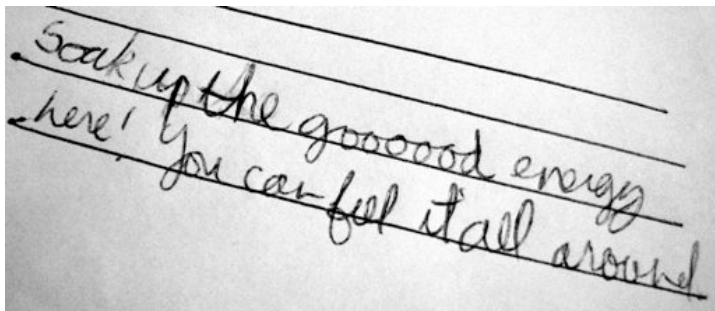 Soak up the goooood energy
here! You can feel it all around